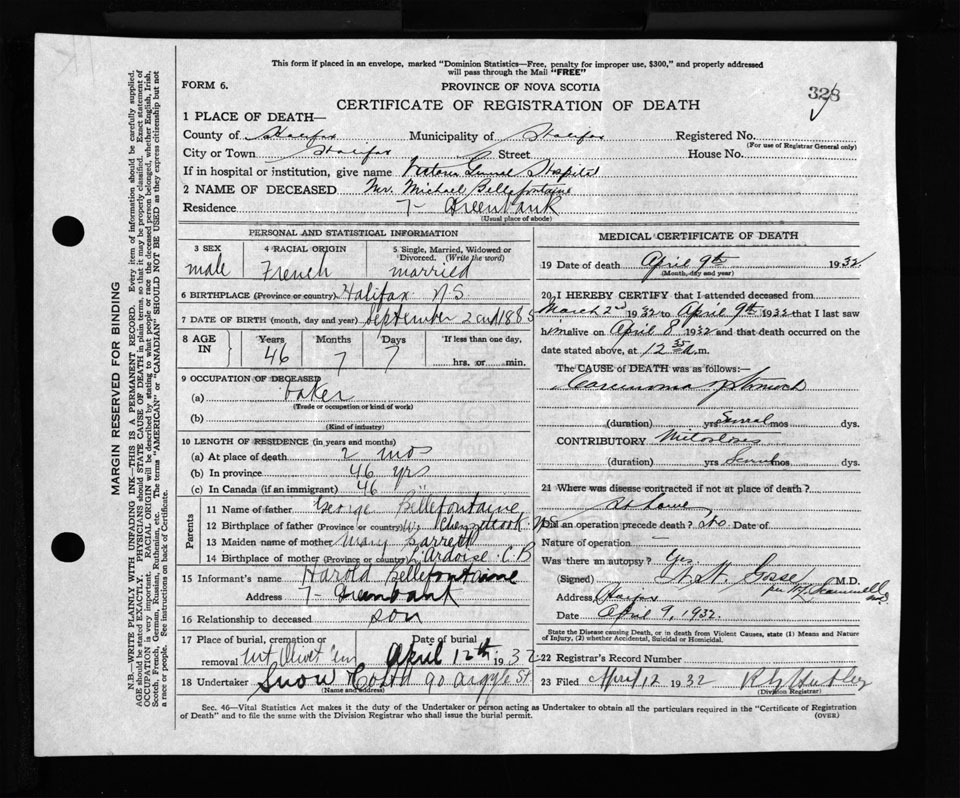 This form if placed in an envelope, marked "Dominion Statistics—Free, penalty for improper use, $300," and properly addressed
will pass through the Mail "FREE"
FORM 6.
PROVINCE OF NOVA SCOTIA
328
CERTIFICATE OF REGISTRATION OF DEATH
1 PLACE OF DEATH—
County of Halifax Municipality of Halifax Registered No.
(For use of Registrar General only)
City or Town Halifax Street House No.
If in hospital or institution, give name Victoria General Hospital
2 NAME OF DECEASED Mr. Michael Bellefontaine
Residence 7 - Greenbank
(Usual place of abode)
PERSONAL AND STATISTICAL INFORMATION
3 SEX 4 RACIAL ORIGIN 5 Single, Married, Widowed or
Divorced. (Write the word)
male French married
6 BIRTHPLACE (Province or country) Halifax N.S.
7 DATE OF BIRTH (month, day and year) September 2nd 1885
8 AGE IN Years Months Days If less than one day,
46 7 7 hrs. or min.
9 OCCUPATION OF DECEASED
(a) baker
(Trade or occupation or kind of work)
(b)
(Kind of industry)
10 LENGTH OF RESIDENCE (in years and months)
(a) At place of death 2 mos
(b) In province 46 yrs
(c) In Canada (if an immigrant) 46
Parents
11 Name of father George Bellefontaine
12 Birthplace of father (Province or country) W. Chezzetcook N.S.
13 Maiden name of mother Mary Barrett
14 Birthplace of mother (Province or country) L'Ardoise C.B
15 Informant's name Harold Bellefontaine
Address 7 - Greenbank
16 Relationship to deceased son
17 Place of burial, cremation or Date of burial
removal Mt Olivet Cem April 12th 1932
18 Undertaker Snow Co Ltd 90 Argyle St
(Name and address)
MEDICAL CERTIFICATE OF DEATH
19 Date of death April 9th 1932
(Month, day and year)
20 I HEREBY CERTIFY that I attended deceased from
March 2nd 1932 to April 9th 1932 that I last saw
him alive on April 8 1932 and that death occurred on the
date stated above, at 12 35 a.m.
The CAUSE of DEATH was as follows:—
Carcinoma of Stomach
(duration) yrs Several mos dys.
CONTRIBUTORY
(duration) yrs Several mos dys.
21 Where was disease contracted if not at place of death?
At home
Did an operation precede death? No. Date of
Nature of operation —
Was there an autopsy? Yes
(Signed) Gosse M.D.
per
Address Halifax
Date April 9, 1932.
State the Disease causing Death, or in death from Violent Causes, state (1) Means and Nature
of Injury, (2) whether Accidental, Suicidal or Homicidal.
22 Registrar's Record Number
23 Filed April 12 1932
(Division Registrar)
Sec. 46—Vital Statistics Act makes it the duty of the Undertaker or person acting as Undertaker to obtain all the particulars required in the "Certificate of Registration
of Death" and to file the same with the Division Registrar who shall issue the burial permit.
(OVER)
MARGIN RESERVED FOR BINDING
N.B.—WRITE PLAINLY WITH UNFADING INK—THIS IS A PERMANENT RECORD. Every item of information should be carefully supplied.
AGE should be stated EXACTLY. PHYSICIANS should STATE CAUSE OF DEATH in plain terms, so that it may be properly classified. Exact statement of
OCCUPATION is very important. RACIAL ORIGIN will be described by stating to what people or race the deceased person belonged, whether English, Irish,
Scotch, French, German, Russian, Ruthenian, etc. The terms "AMERICAN" or "CANADIAN" SHOULD NOT BE USED as they express citizenship but not
a race or people. See instructions on back of Certificate.